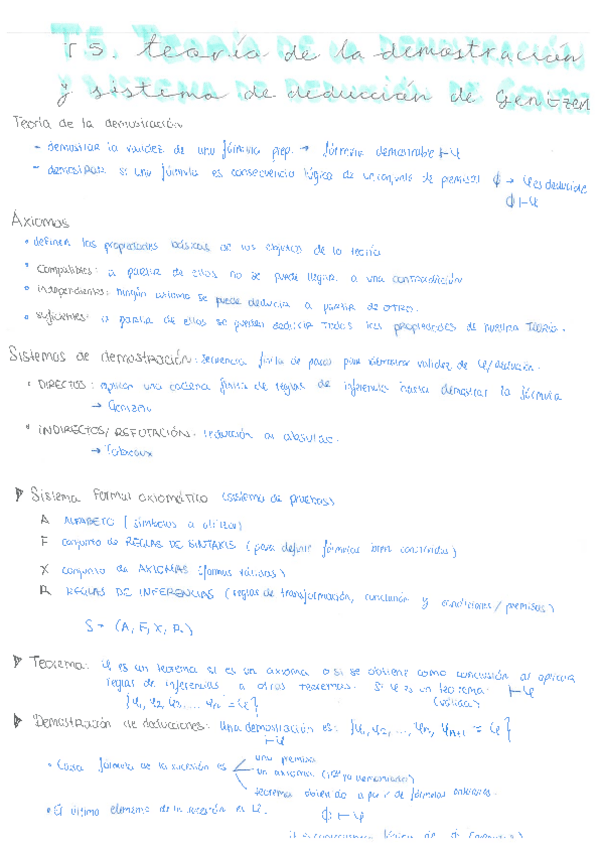 T5. Teoría de la demostración
y sistema de deducción de Gentzen
Teoría de la demostración
- demostrar la validez de una fórmula prop. → fórmula demostrable ⊢φ
- demostrar si una fórmula es consecuencia lógica de un conjunto de premisas ϕ → φ es deducible
ϕ⊢φ
Axiomas
• definen las propiedades básicas de los objetos de la teoría
• Compatibles: a partir de ellos no se puede llegar a una contradicción
• Independientes: ningún axioma se puede deducir a partir de otro.
• Suficientes: a partir de ellos se pueden deducir todas las propiedades de nuestra Teoría.
Sistemas de demostración: secuencia finita de pasos para demostrar validez de φ/deducción.
• DIRECTOS: aplican una cadena finita de reglas de inferencia hasta demostrar la fórmula
→ Gentzen
• INDIRECTOS/REFUTACIÓN: reducción al absurdo.
→ Tableaux
Sistema formal axiomático (sistema de pruebas)
A ALFABETO (símbolos a utilizar)
F conjunto de REGLAS DE SINTAXIS (para definir fórmulas bien construidas)
X conjunto de AXIOMAS (fórmulas válidas)
R REGLAS DE INFERENCIAS (reglas de transformación, conclusión y condiciones/premisas)
S = (A, F, X, R)
Teorema: φ es un teorema si es un axioma o si se obtiene como conclusión al aplicar
reglas de inferencias a otros teoremas. Si φ es un teorema: ⊢φ
{φ1, φ2, φ3, ... φn = φ} (válida)
Demostración de deducciones: Una demostración es: {φ1, φ2, ..., φn, φn+1 = φ}
⊢φ
• Cada fórmula de la sucesión es
una premisa
un axioma (ya demostrado)
teorema obtenido a partir de fórmulas anteriores.
• El último elemento de la sucesión es φ. ϕ ⊢ φ